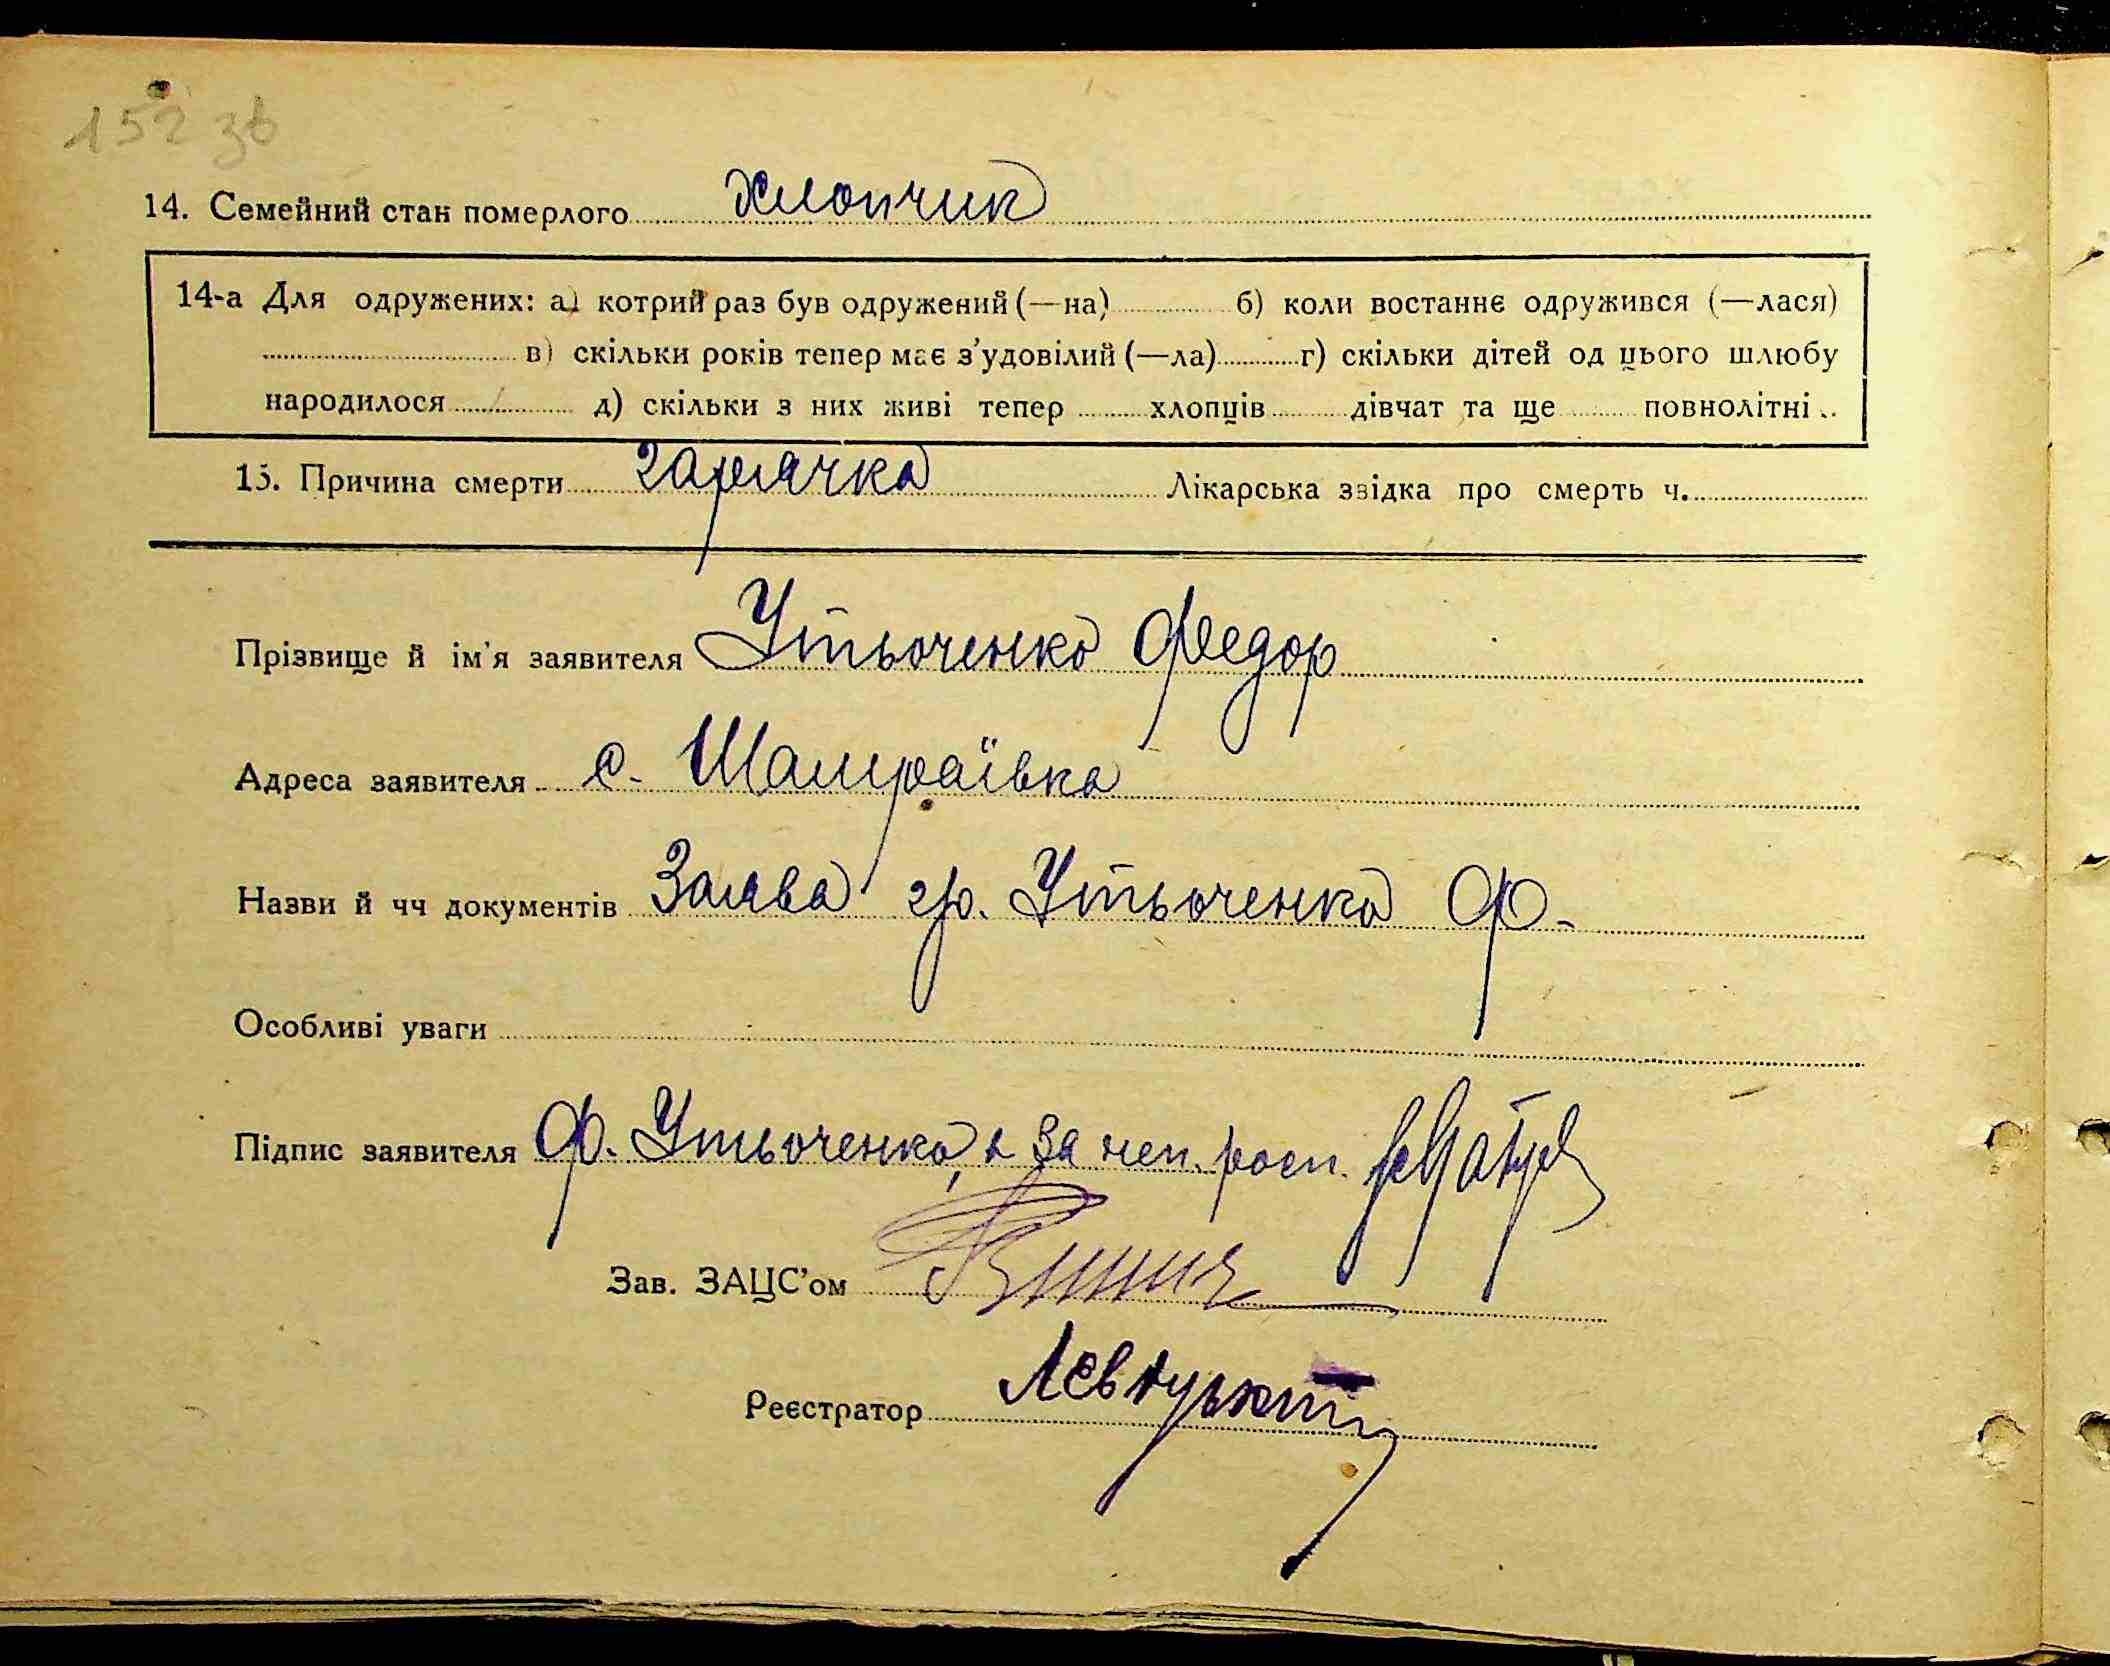 152 зв
14. Семейний стан померлого хлопчик
14-а Для одружених: а) котрий раз був одружений (—на) б) коли востаннє одружився (—лася)
в) скільки років тепер має з'удовілий (—ла) г) скільки дітей од цього шлюбу
народилося д) скільки з них живі тепер хлопців дівчат та ще повнолітні
15. Причина смерти гарячка Лікарська звідка про смерть ч.
Прізвище й ім'я заявителя Утьоченко Федор
Адреса заявителя с. Шамраївка
Назви й чч документів Заява гр. Утьоченко Ф.
Особливі уваги
Підпис заявителя Ф. Утьоченко, а за неп. росп.
Зав. ЗАЦС'ом
Реєстратор